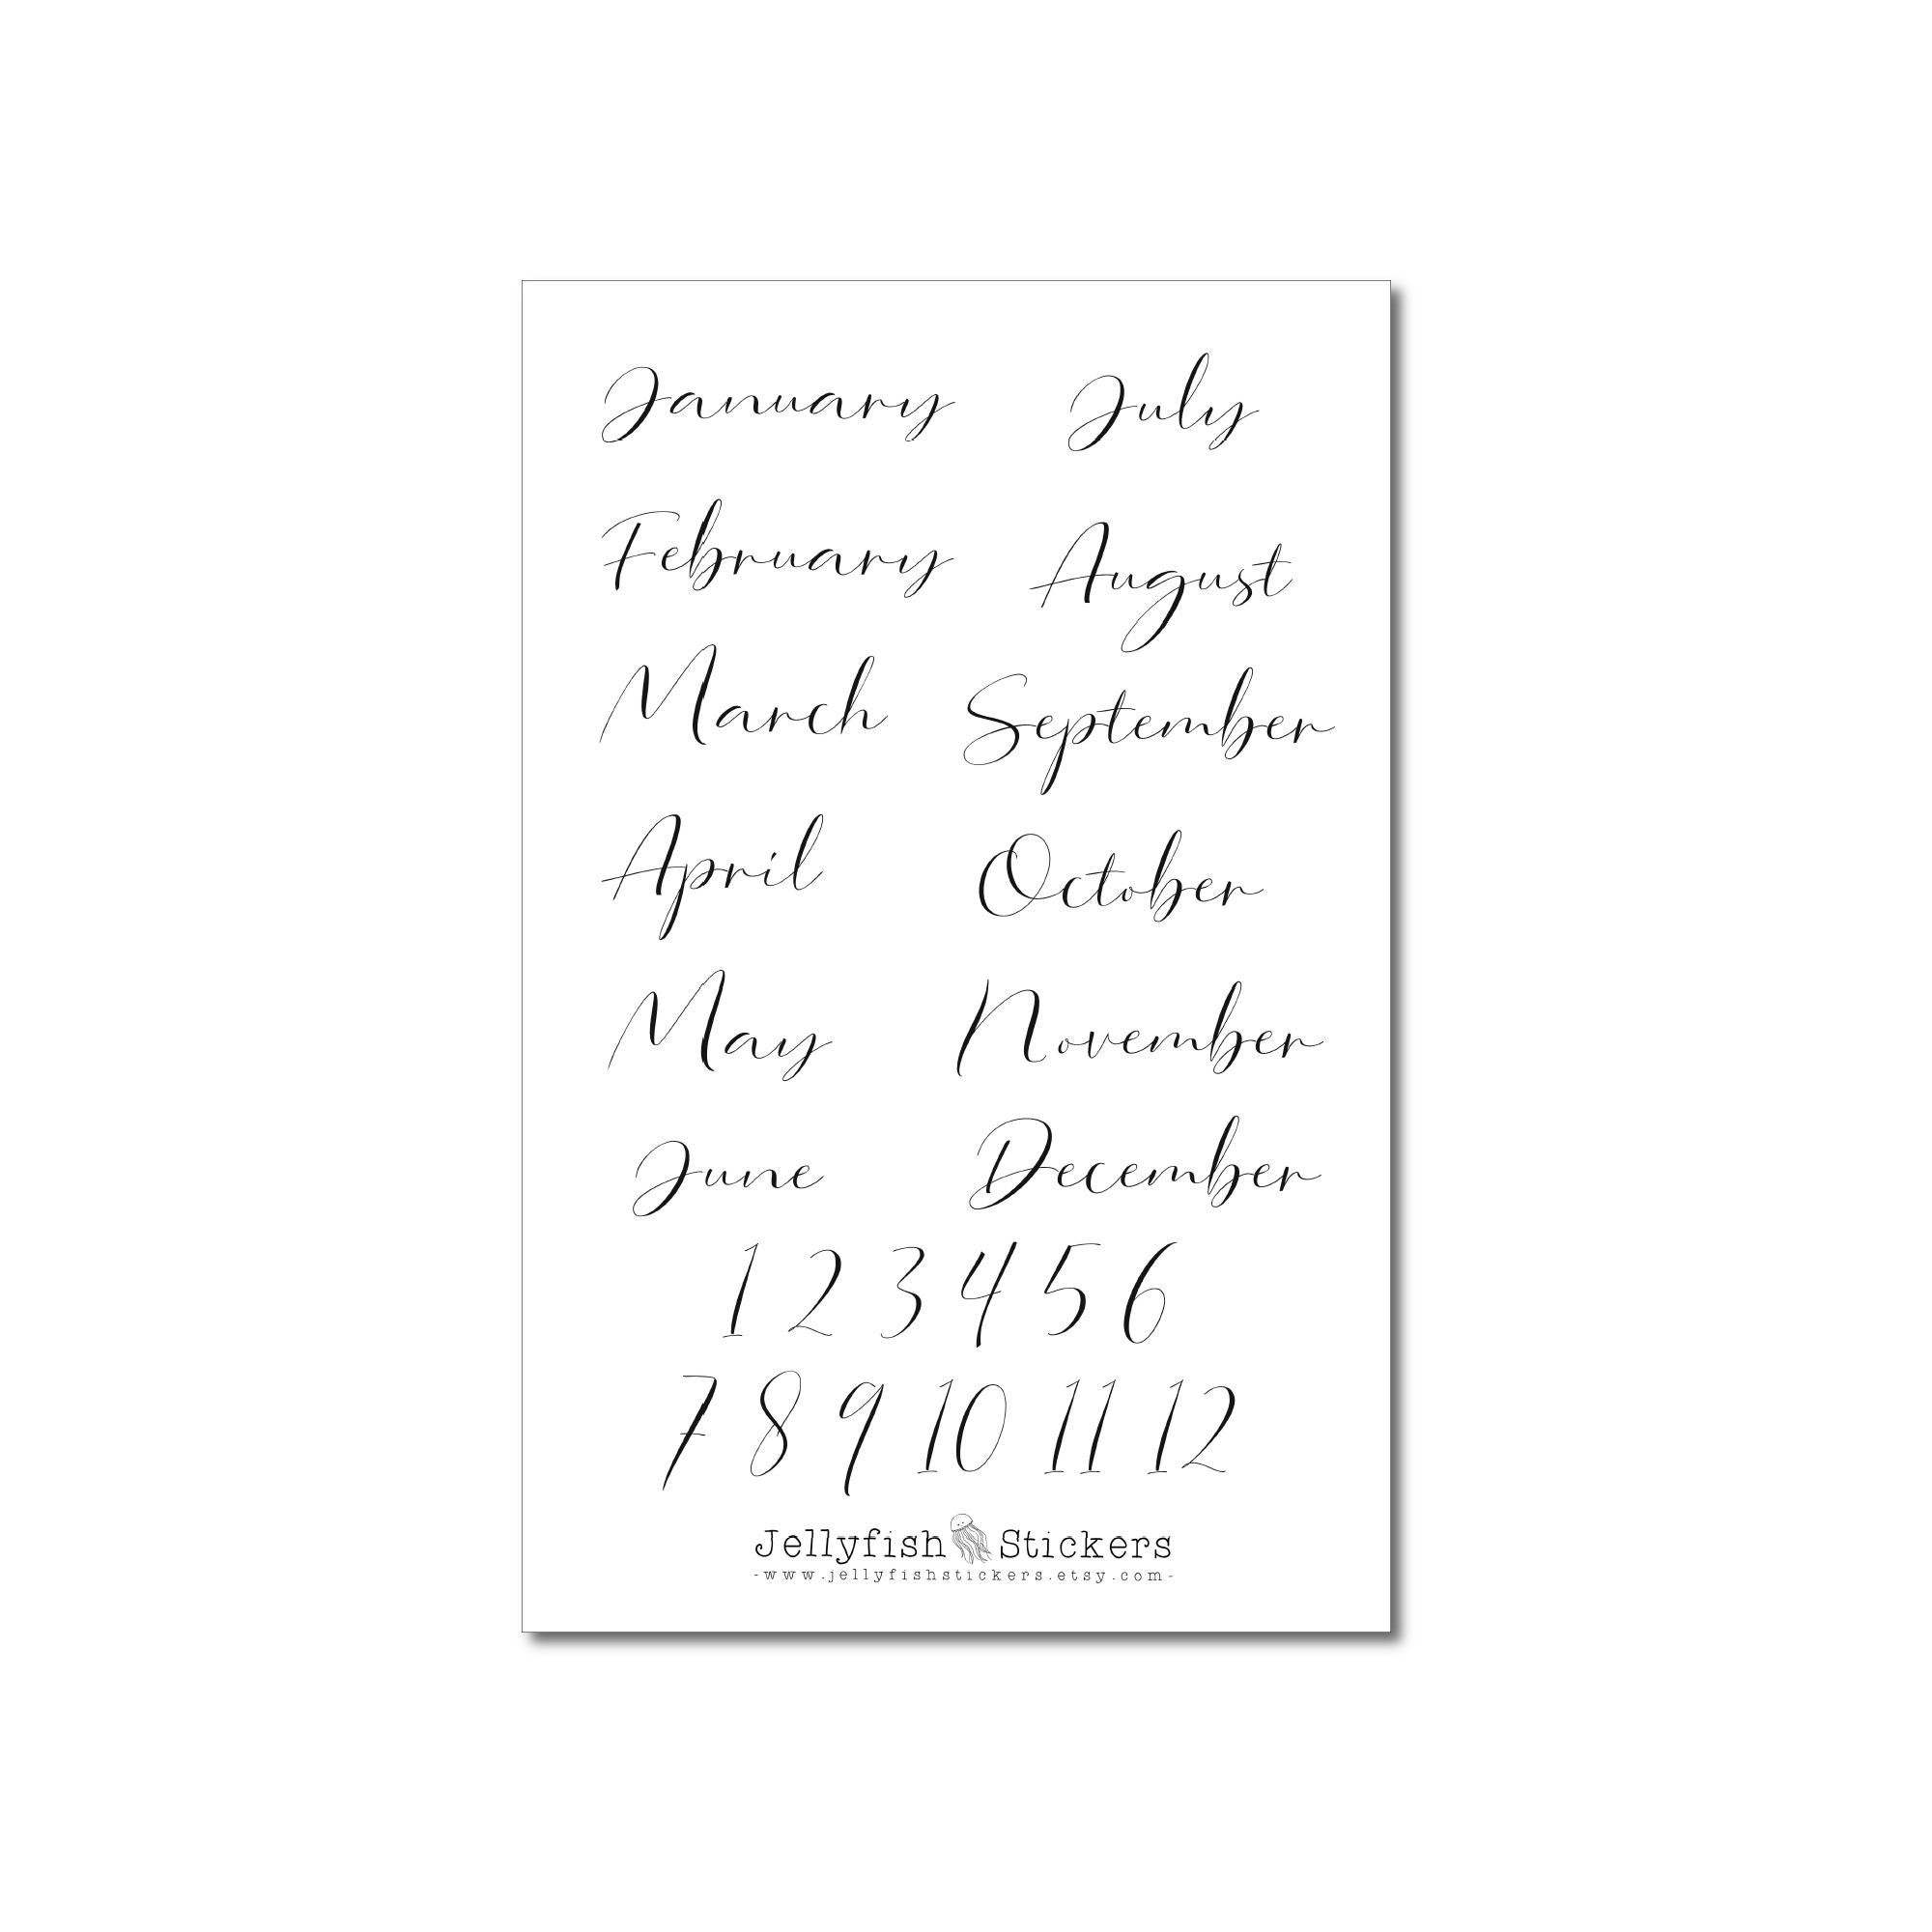 January July
February August
March September
April October
May November
June December
1 2 3 4 5 6
7 8 9 10 11 12
Jellyfish Stickers
-www.jellyfishstickers.etsy.com-